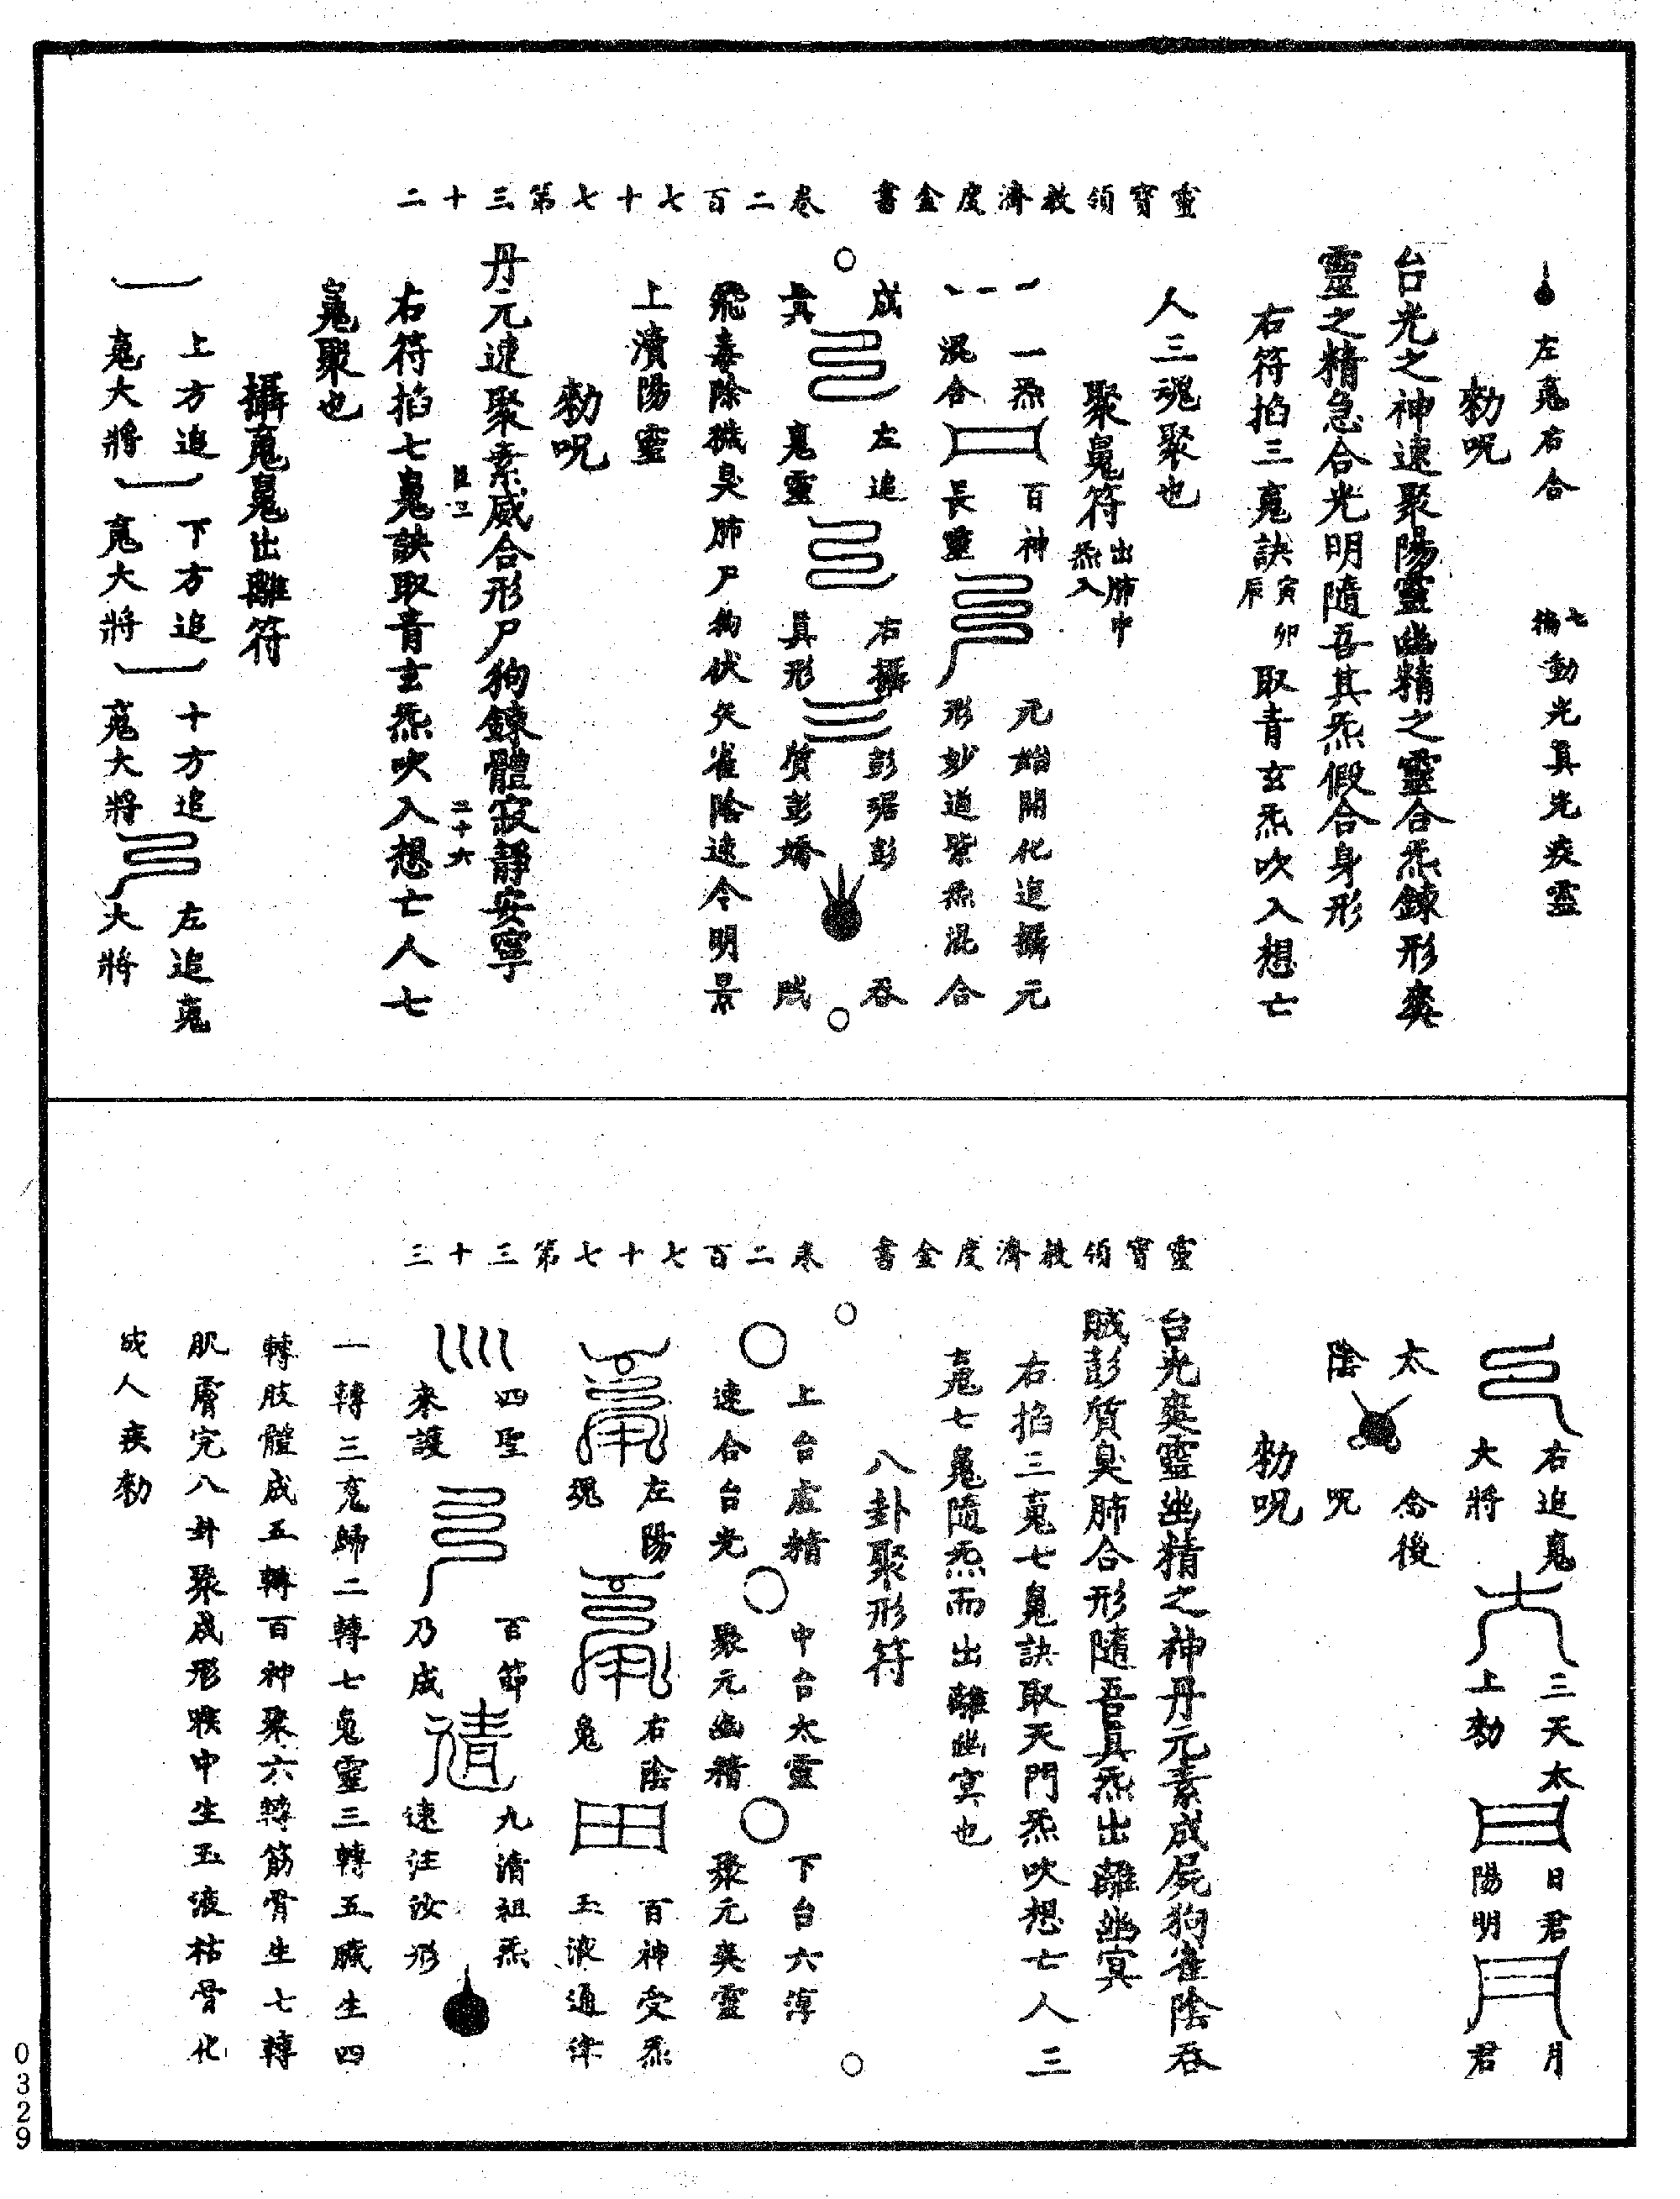 靈寶領教濟度金書　卷二百七十七第三十二
左䰟右合　七徧動光眞光疾靈
勑呪
台光之神速聚陽靈幽精之靈合炁鍊形爽
靈之精急合光明隨吾其炁假合身形
右符掐三䰟訣寅卯辰取青玄炁吹入想亡
人三魂聚也
聚䰠符出肺中炁入
一炁　百神　元始開化追攝元
混合　長靈　形妙道紫炁混合
成　左追　右攝　彭琚彭　吞
眞　䰟靈　眞形　質彭矯　賊
飛毒除穢臭肺尸狗伏矢雀陰速令明景
上瀆陽靈
勑呪
丹元速聚素威合形尸狗鍊體寂靜安寧
二十六
右符掐七䰠訣取青玄炁吹入想亡人七
䰠聚也
攝䰟䰠出離符
上方追　下方追　十方追　左追䰟
䰟大將　䰟大將　䰟大將　大將
靈寶領教濟度金書　卷二百七十七第三十三
右追䰟　三天太　日君　月
大將　上勑　陽明　君
太　念後
陰　呪
勑呪
台光爽靈幽精之神丹元素成屍狗雀陰吞
賊彭質臭肺合形隨吾真炁出離幽冥
右掐三䰟七䰠訣取天門炁吹想亡人三
䰟七䰠隨炁而出離幽冥也
八卦聚形符
上台虛精　中台太靈　下台六淳
速合台光　聚元幽精　聚元爽靈
左陽　右陰　百神受炁
魂　䰠　玉液通津
四聖　百節　九清祖炁
來護　乃成　速注汝形
一轉三䰟歸二轉七䰠靈三轉五臟生四
轉肢體成五轉百神聚六轉筋骨生七轉
肌膚完八卦聚成形喉中生玉液枯骨化
成人疾勑
0329